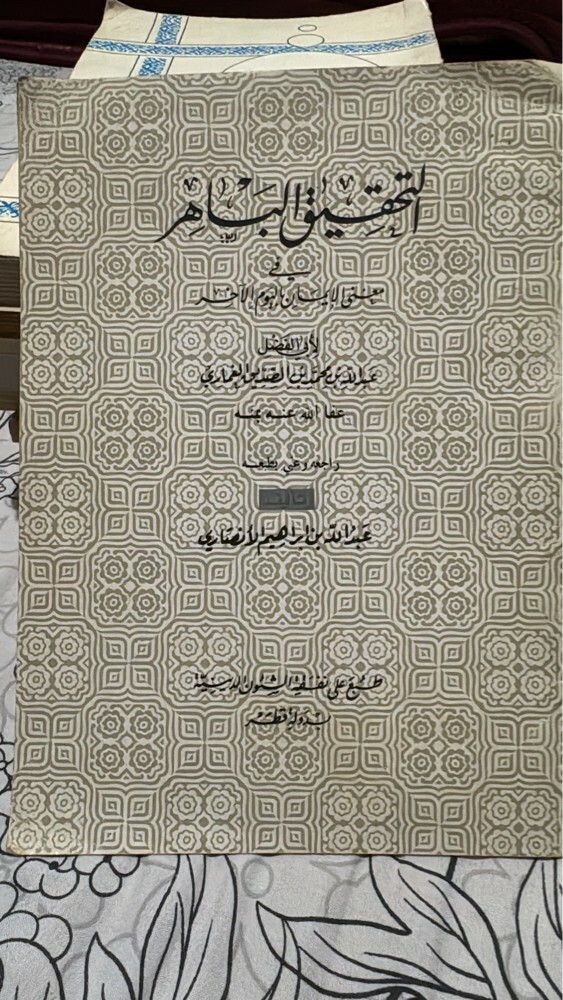 التحقيق الباهر
في
معنى الإيمان باليوم الآخر
لأبي الفضل
عبد الله بن محمد بن الصديق الغماري
عفا الله عنه بمنه
راجعه وعني بطبعه
عبد الله بن إبراهيم الأنصاري
طبع على نفقة الشئون الدينية
بدولة قطر